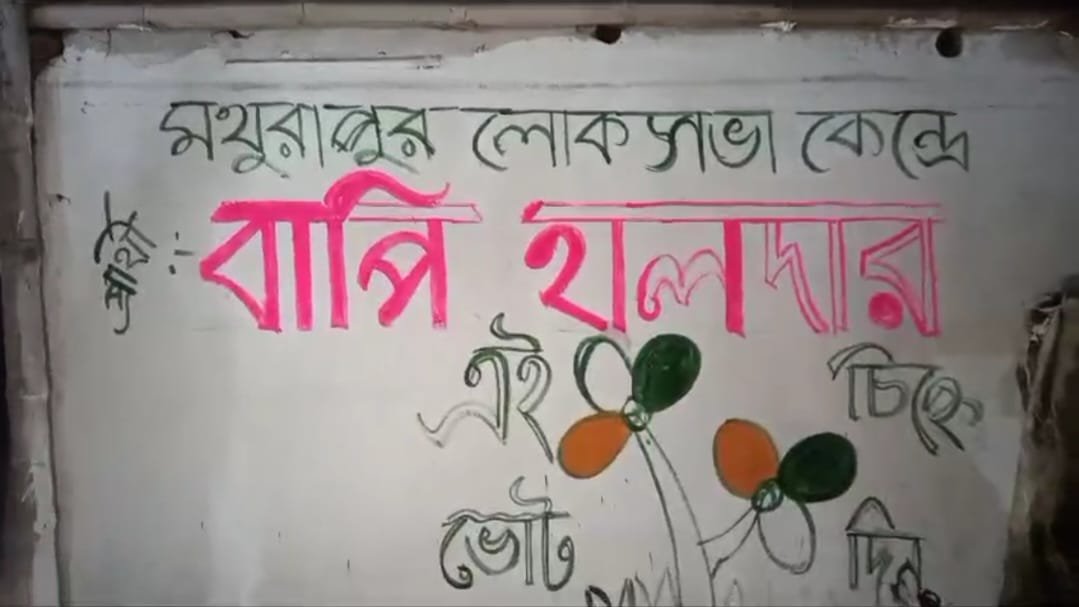 মথুরাপুর লোকসভা কেন্দ্রে
প্রার্থী :- বাপি হালদার
এই চিহ্নে
ভোট দিন